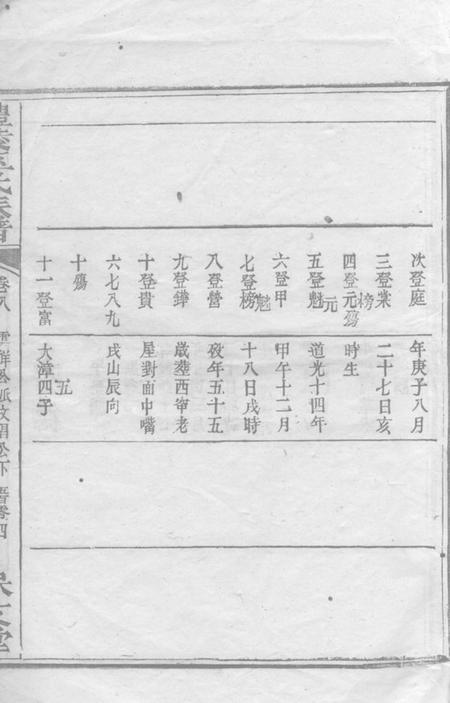 次登庭
三登業
榜
四登元殤
元
五登魁
六登甲
魁
七登榜
八登營
九登鏵
十登貴
六七八九
十殤
十一登富
年庚子八月
二十七日亥
時生
道光十四年
甲午十二月
十八日戌時
歿年五十五
歲葬西窜老
屋對面中嘴
戌山辰向
五
大漳四子
卷八